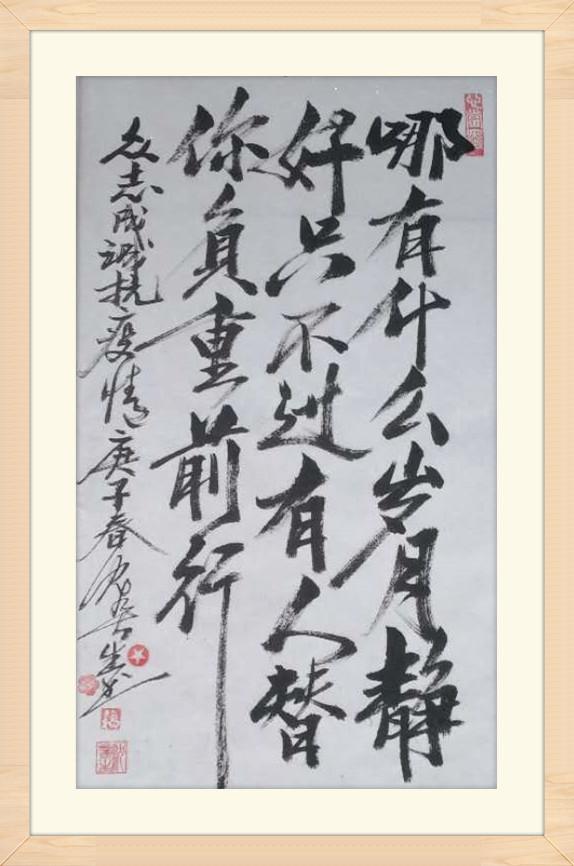 哪有什么岁月静
好只不过有人替
你负重前行
众志成城抗疫情庚子春